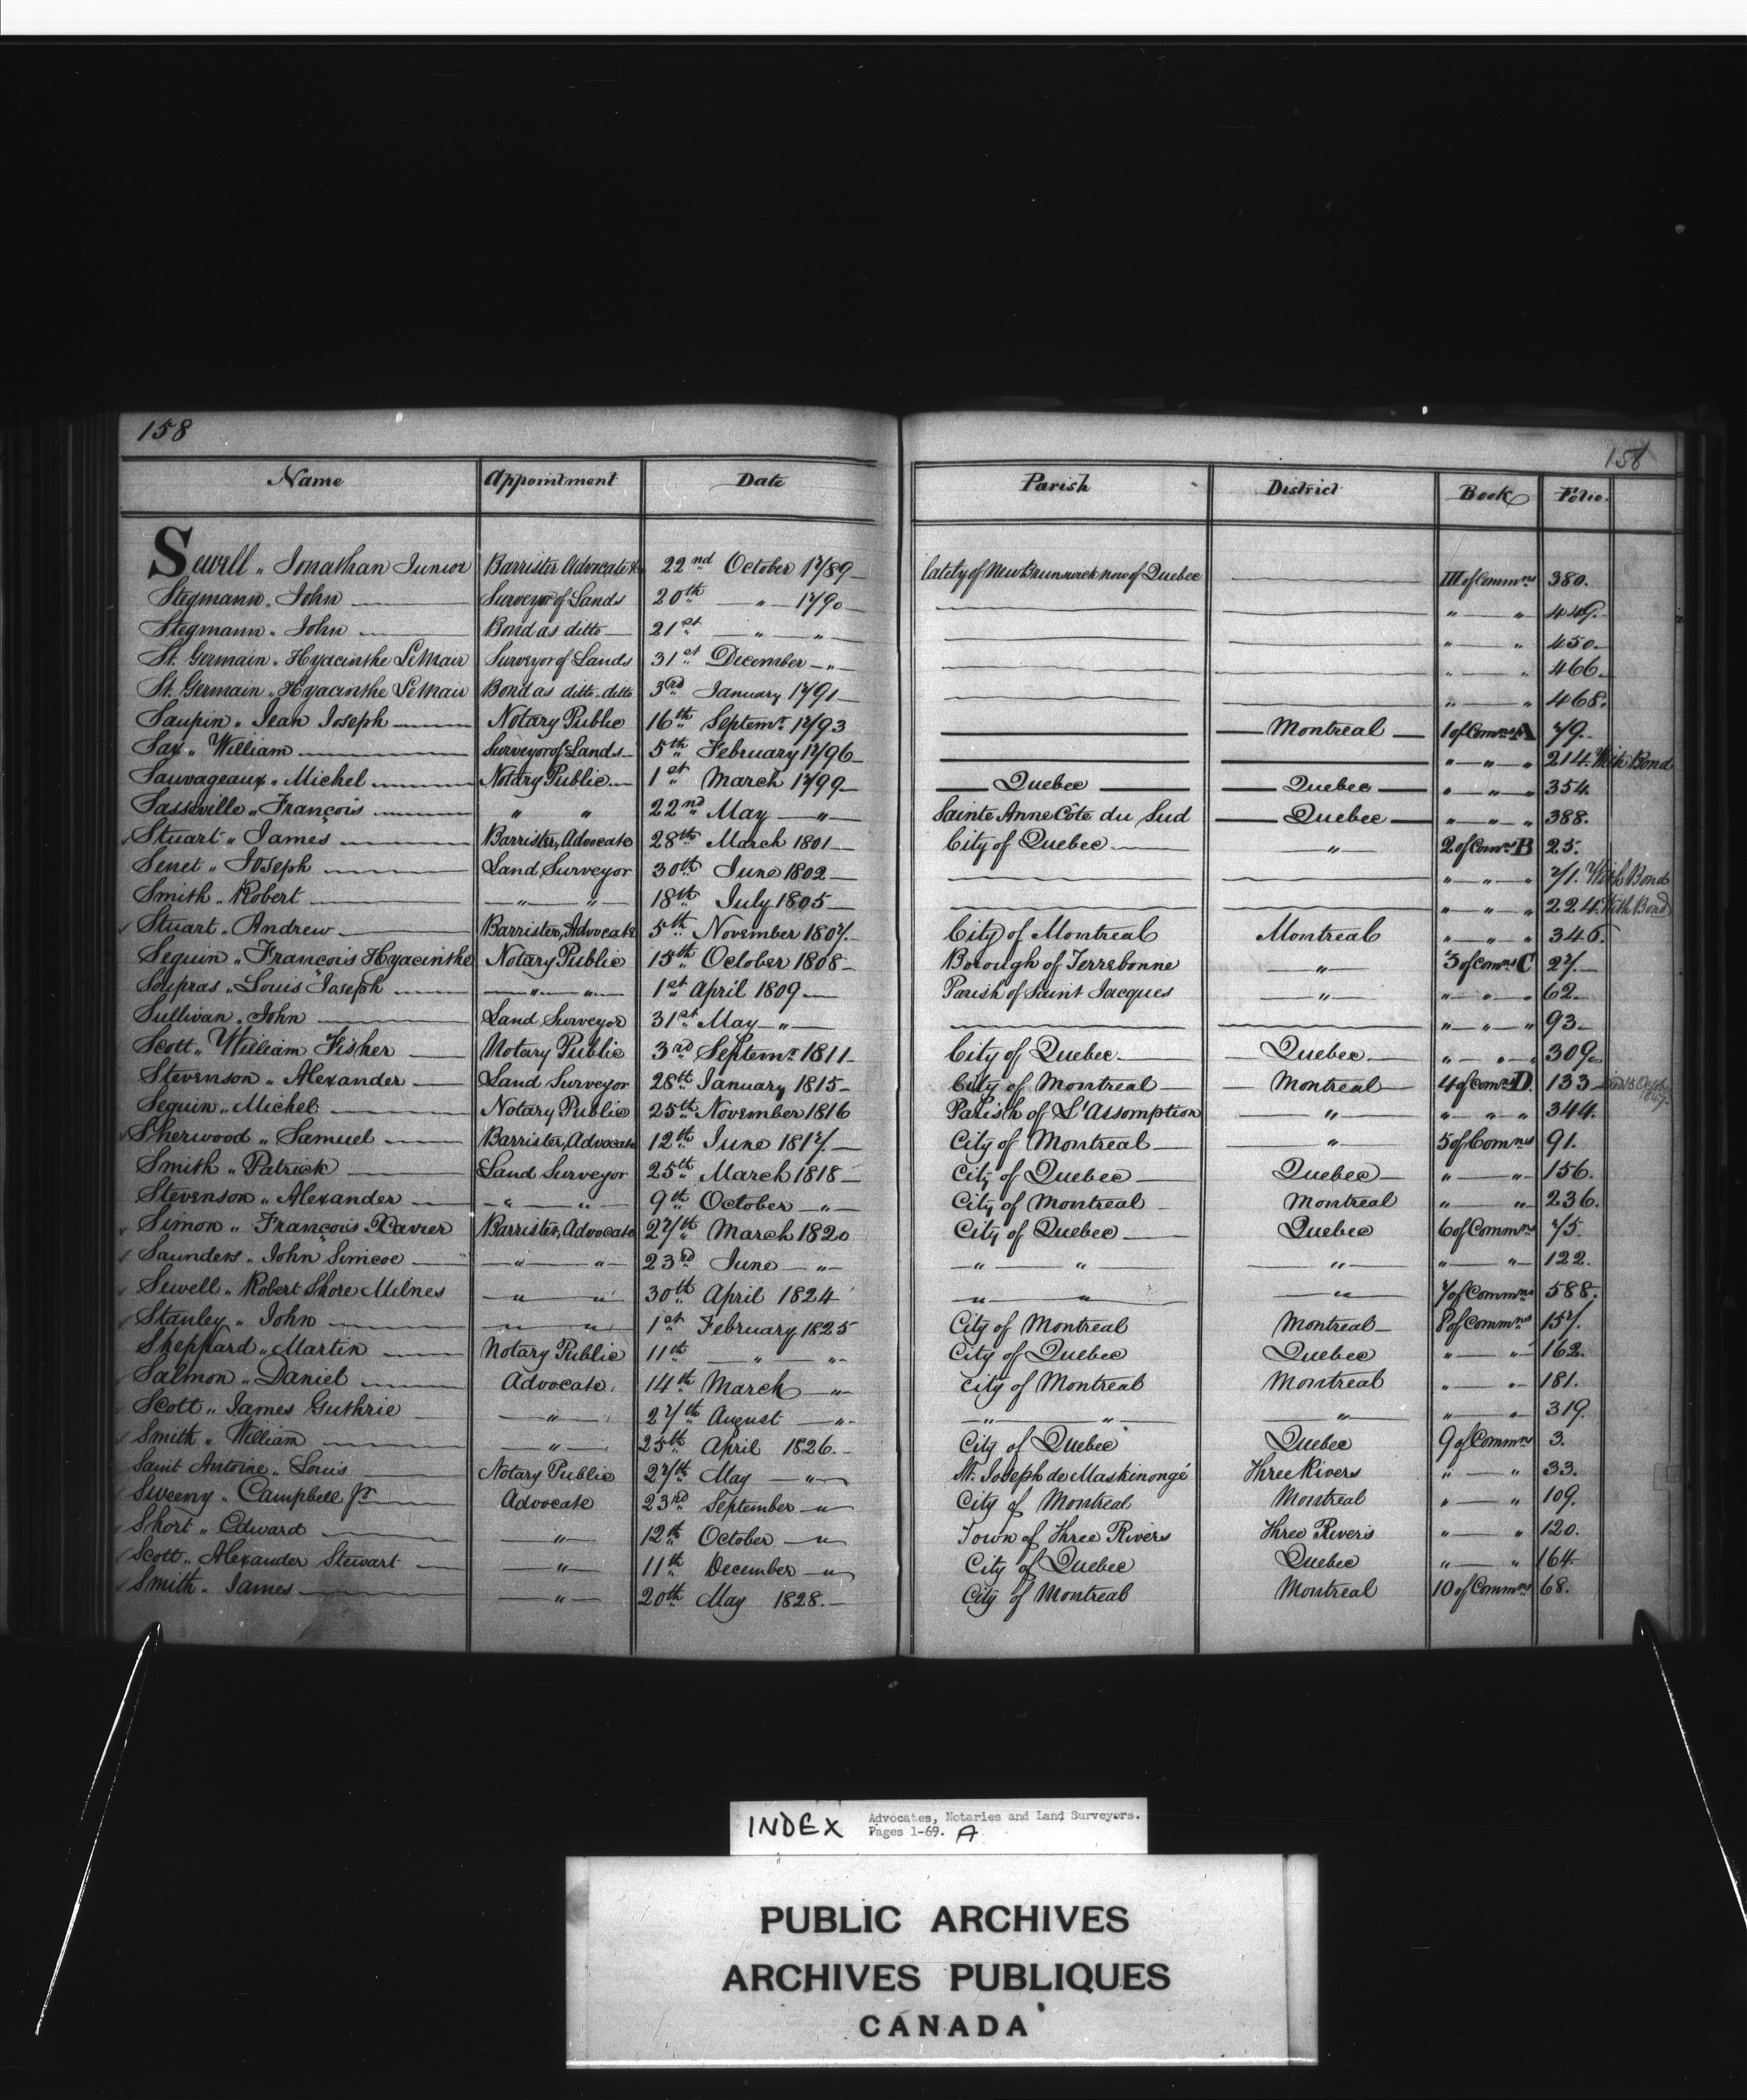 158
158
Name Appointment Date Parish District Book Folio.
Sewell „ Jonathan Junior Barrister Advocate &c 22nd October 1789 lately of New Brunswick now of Quebec III of Commns 380.
Stegmann „ John Surveyor of Lands 20th „ 1790 „ „ 449.
Stegmann „ John Bond as ditto 21st „ „ „ „ 450
St. Germain „ Hyacinthe LeMair Surveyor of Lands 31st December „ „ „ 466
St. Germain „ Hyacinthe LeMair Bond as ditto ditto 3rd January 1791 „ „ 468.
Saupin „ Jean Joseph Notary Public 16th Septemr. 1793 Montreal 1 of Comns A 79.
Sax „ William Surveyor of Lands 5th February 1796 „ „ „ 214. With Bond
Sauvageaux „ Michel Notary Public 1st March 1799 Quebec Quebec „ „ „ 354
Sasseville „ François „ „ 22nd May „ Sainte Anne Côte du Sud Quebec „ „ „ 388.
Stuart „ James Barrister, Advocate 28th March 1801 City of Quebec „ 2 of Comns B 25.
Senet „ Joseph Land Surveyor 30th June 1802 „ „ „ 71. With Bond
Smith „ Robert „ „ 18th July 1805 „ „ „ 224. With Bond
Stuart „ Andrew Barrister, Advocate 5th November 1807. City of Montreal Montreal „ „ „ 346.
Seguin „ François Hyacinthe Notary Public 15th October 1808 Borough of Terrebonne „ 3 of Comns C 27.
Soupras „ Louis Joseph „ „ 1st April 1809 Parish of Saint Jacques „ „ „ „ 62
Sullivan „ John Land Surveyor 31st May „ „ „ „ 93
Scott „ William Fisher Notary Public 3rd Septemr. 1811 City of Quebec Quebec „ „ „ 309
Stevenson „ Alexander Land Surveyor 28th January 1815 City of Montreal Montreal 4 of Comns D. 133
Seguin „ Michel Notary Public 25th November 1816 Parish of L'Assomption „ „ „ „ 344.
Sherwood „ Samuel Barrister, Advocate 12th June 1817. City of Montreal „ 5 of Comns 91.
Smith „ Patrick Land Surveyor 25th March 1818 City of Quebec Quebec „ „ 156.
Stevenson „ Alexander „ „ 9th October „ City of Montreal Montreal „ „ 236.
Simon „ François Xavier Barrister, Advocate 27th March 1820 City of Quebec Quebec 6 of Commns 75.
Saunders „ John Simcoe „ „ 23rd June „ „ „ „ „ „ 122.
Sewell „ Robert Shore Milnes „ „ 30th April 1824 „ „ „ 7 of Commns 588.
Stanley „ John „ „ 1st February 1825 City of Montreal Montreal 8 of Commns 157.
Sheppard „ Martin Notary Public 11th „ „ City of Quebec Quebec „ „ 162.
Salmon „ Daniel Advocate 14th March „ City of Montreal Montreal „ „ 181.
Scott „ James Guthrie „ 27th August „ „ „ „ „ „ 319.
Smith „ William „ 25th April 1826. City of Quebec Quebec 9 of Commns 3.
Saint Antoine „ Louis Notary Public 27th May „ St. Joseph de Maskinongé Three Rivers „ „ 33.
Sweeny „ Campbell Jr Advocate 23rd September „ City of Montreal Montreal „ „ 109.
Short „ Edward „ 12th October „ Town of Three Rivers Three Rivers „ „ 120.
Scott „ Alexander Stewart „ 11th December „ City of Quebec Quebec „ „ 164
Smith „ James „ 20th May 1828. City of Montreal Montreal 10 of Commns 68.
INDEX Advocates, Notaries and Land Surveyors.
Pages 1-69. A
PUBLIC ARCHIVES
ARCHIVES PUBLIQUES
CANADA